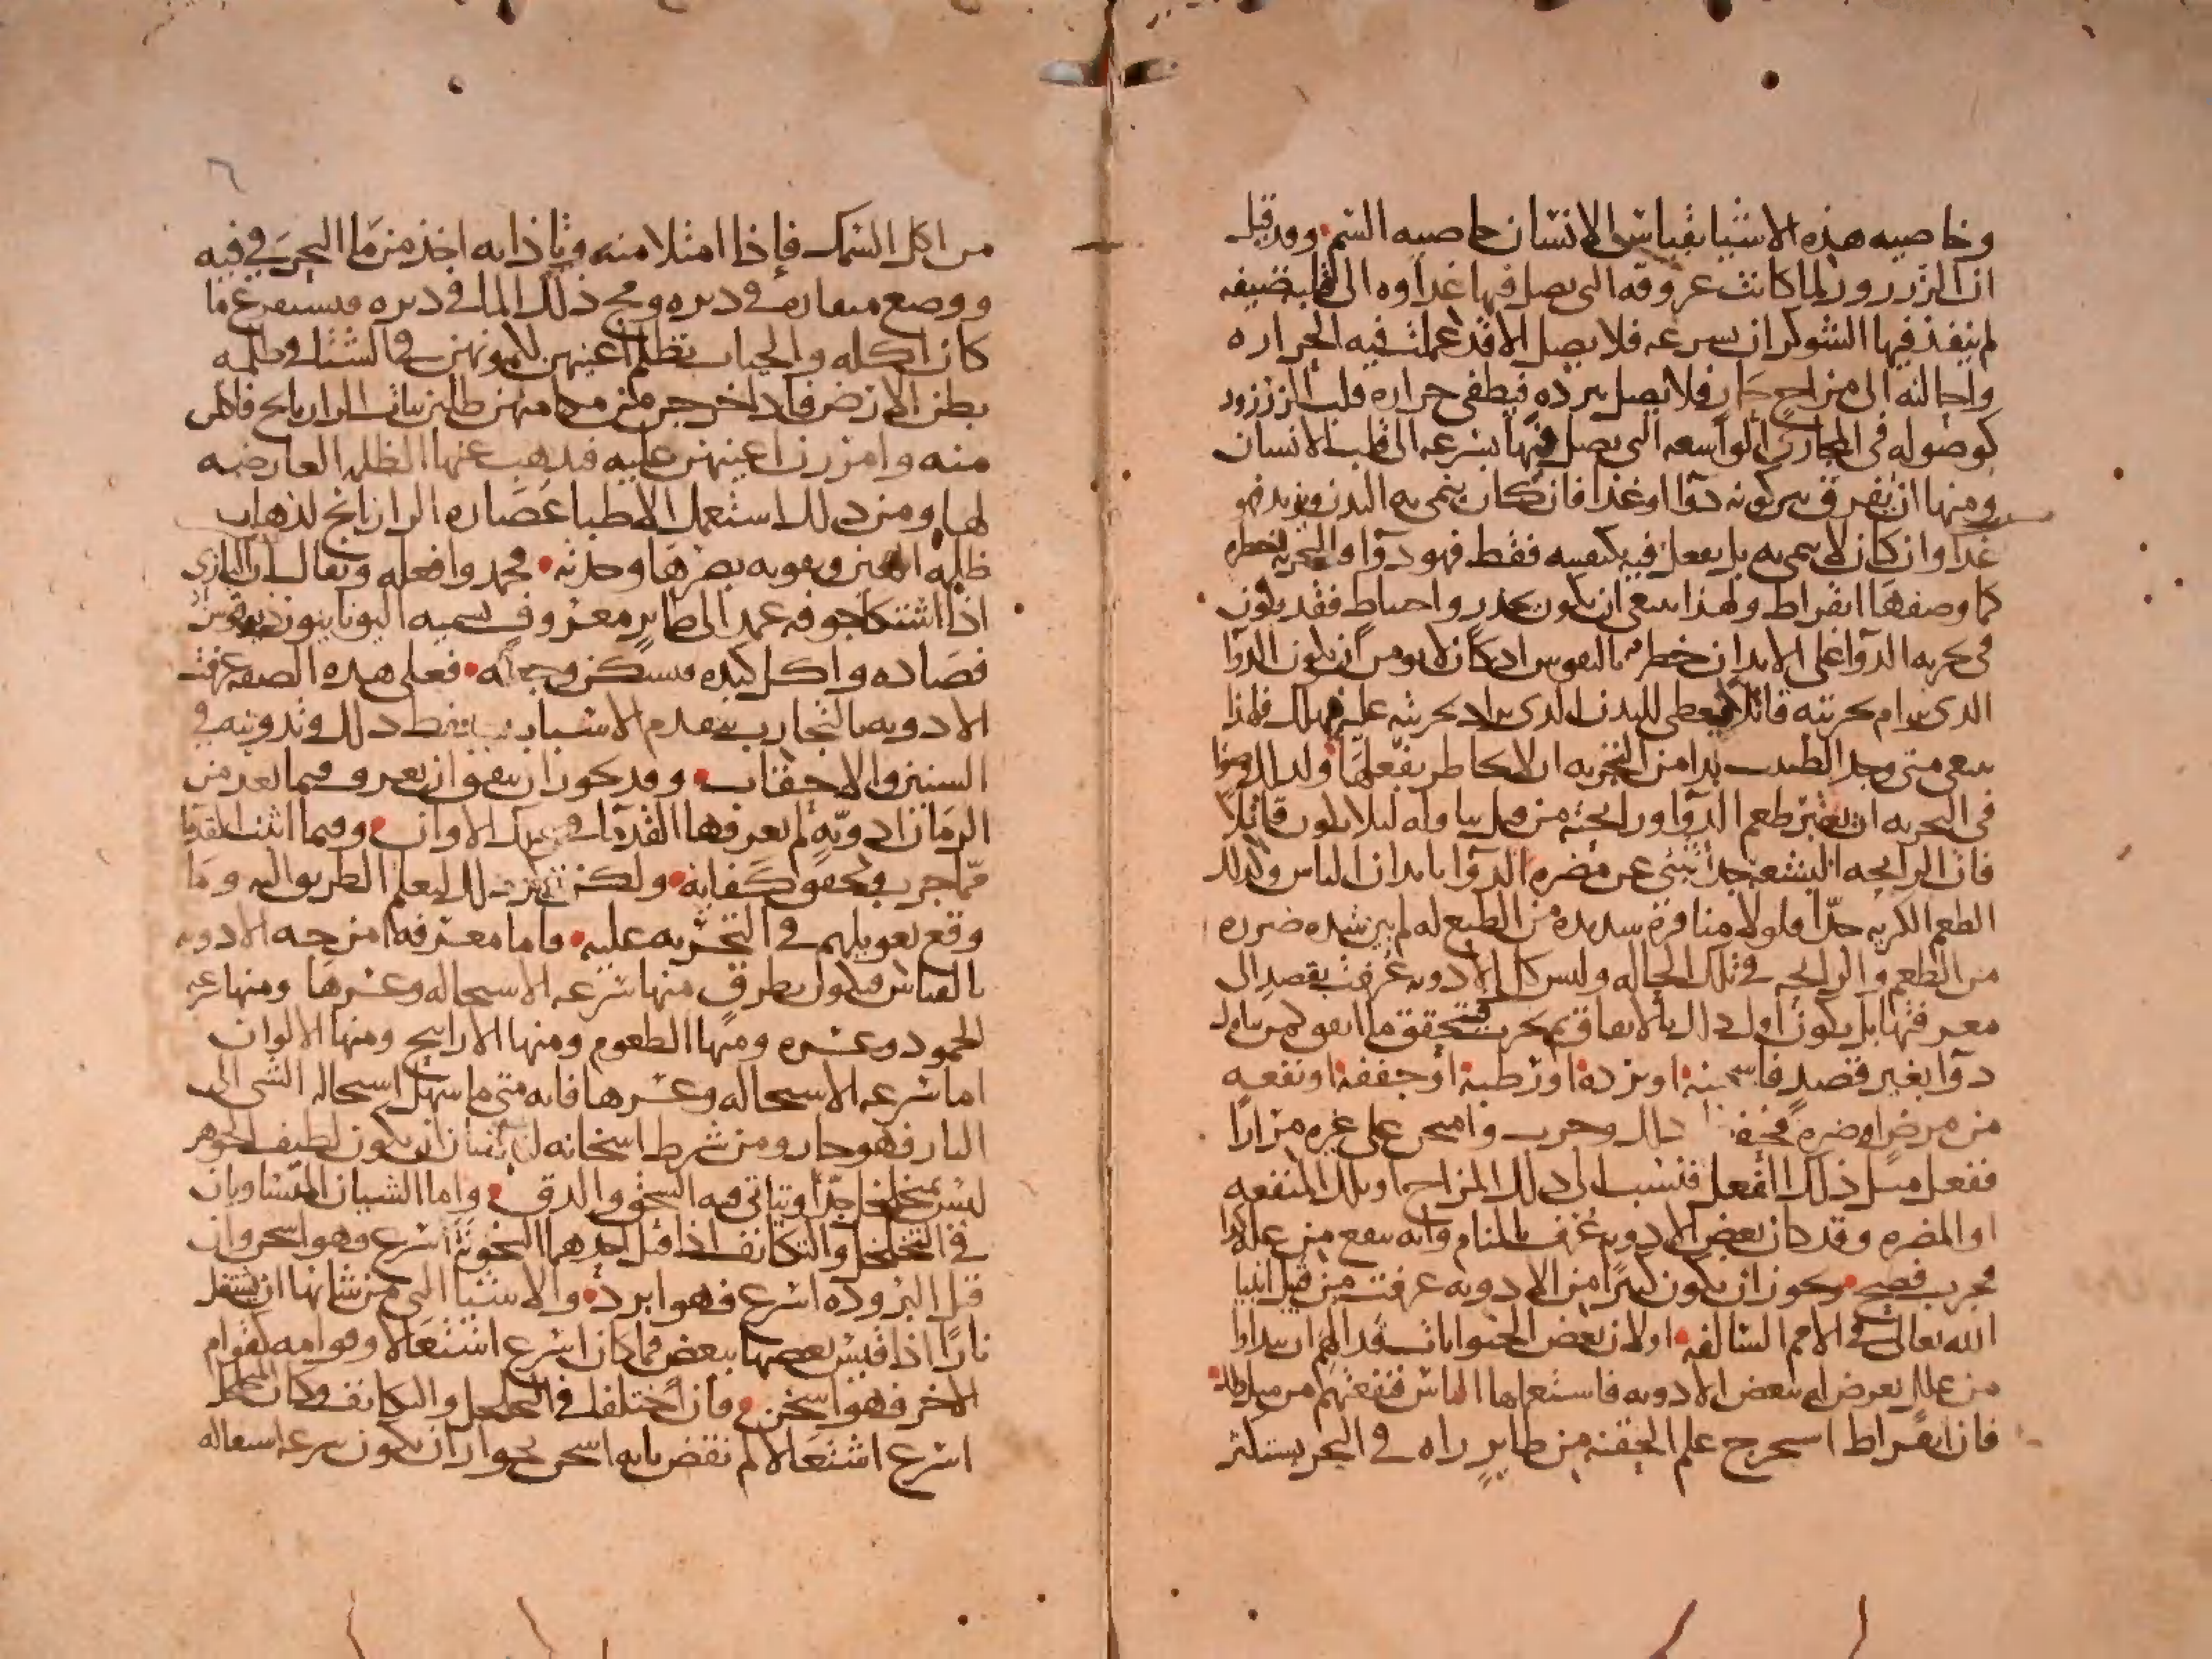 وخاصيه هذه الاشيا بقياس الانسان خاصيه السم وقد قيل
ان الزرزور لما كانت عروقه التي يصل فيها غداوه الى قلبه ضيقه
لم ينفذ فيها الشوكران بسرعه فلا يصل الا وقد عملت فيه الحراره
واحالته الى مزاج حار فلا يصل برده فيطفى حراره قلب الزرزور
كوصوله في المجارى الواسعه التي يصل فيها بسرعه الى قلب الانسان
ومنها ان يفرق بين كونه دوا او غذا فان كان ينمى به البدن ويزيد فهو
غدا وان كان لا ينمى به بل يفعل فيه بكيفيته فقط فهو دوا والتجربه خطره
كما وصفها ابقراط ولهذا ينبغي ان يكون بحدر واحتياط فقد يكون
في تجربه الدوا على الابدان خطر بالنفوس اذ كان لا يومن ان يكون الدوا
الدى يرام تجربته قاتلا فيعطى للبدن الدى يراد تجربته عليه فيهلك فلهذا
ينبغي متى وجد الطبيب بدا من التجربه ان لا يخاطر بفعلها وان
في التجربه ان يعتبر طعم الدوا ورايحته من قبل تناوله ليلا يكون قاتلا
فان الرايحه البشعه جدا تنبى عن مضره الدوا بابدان الناس وكذلك
الطعم الكريه جدا فلولا منافرة شديده من الطبع له لم يبن شده ضرره
من الطعم والرايحه في تلك الحاله وليس كل الادويه عرفت بقصد الى
معرفتها بل يكون اول ذلك بالاتفاق ثم بحرب فتحقق ما اتفق كمن تناول
دوا بغير قصد فاسخنه او برده او رطبه او جففه او نفعه
من مرض او ضره فحفظ ذلك وجرب وامتحن على غيره مرارا
ففعل مثل ذلك الفعل فنسب الى ذلك المزاج او تلك المنفعه
او المضره وقد كان بعض الادويه عرف بالمنام وانه ينفع من عله كذا
فجرب فصح ويجوز ان يكون كثيرا من الادويه عرفت من قبل انبيا
الله تعالى في الامم السالفه او لان بعض الحيوانات قد الهم ان يتداوا
من علل تعرض له ببعض الادويه فاستعملها الناس فنفعتهم من مثل ذلك
فان ابقراط استخرج علم الحقنه من طاير راه في البحر يستكثر
من اكل السمك فاذا امتلا منه وتاذا به اخذ من ما البحر في فيه
ووضع منقاره في دبره ومج ذلك الما في دبره فيستفرغ ما
كان اكله والحيات تظلم اعينهن لكمونهن في الشتا في ظلمه
بطن الارض فاذا خرجن من مكامنهن طلبن نبات الرازيانج فاكلن
منه وامررن اعينهن عليه فيدهب عنها الظلمه العارضه
لها ومن ذلك استعمل الاطبا عصاره الرازيانج لذهاب
ظلمه العين وتقويه بصرها وحدته فحمدوا فعله ويقال ان البازي
اذا اشتكا جوفه عمد الى طاير معروف يسميه اليونانيون
فصاده واكل كبده فيسكن وجعه فعلى هده الصفه عرفت
الادويه بالتجارب بتقدم الاسباب ذلك وتدوينه في
السنين والاحقاب وقد يجوز ان يتفق ان يعرف فيما بعد من
الزمان ادوية لم يعرفها القدما في تلك الاوان وفيما اثبت القدما
مما جرب وتحقق كفايه ولكن ذلك ليعلم الطريق اليه وما
وقع تعويلهم في التجربه عليه فاما معرفه امزجه الادويه
بالقياس فيكون بطرق منها سرعه الاستحاله وعسرها ومنها سرعه
الجمود وعسره ومنها الطعوم ومنها الارايح ومنها الالوان
اما سرعه الاستحاله وعسرها فانه متى ما سهل استحاله الشى الى
النار فهو حار ومن شرط اسخانه ان يكون لطيف الجوهر
ليس متخلخلا جدا ويتاتى فيه السحق والدق واما الشيان المتساويان
في التخلخل والتكاثف اذا قبل احدهما السخونه اسرع فهو اسخن وان
قبل البروده اسرع فهو ابرد والاشيا التي من شانها ان تشتعل
نارا اذا قيس بعضها ببعض فما كان اسرع اشتعالا وقوامه كقوام
الاخر فهو اسخن فان اختلفا في التخلخل والتكاثف وكان المتخلخل
اسرع اشتعالا لم نقض بانه اسخن لجواز ان يكون سرعه اشتعاله